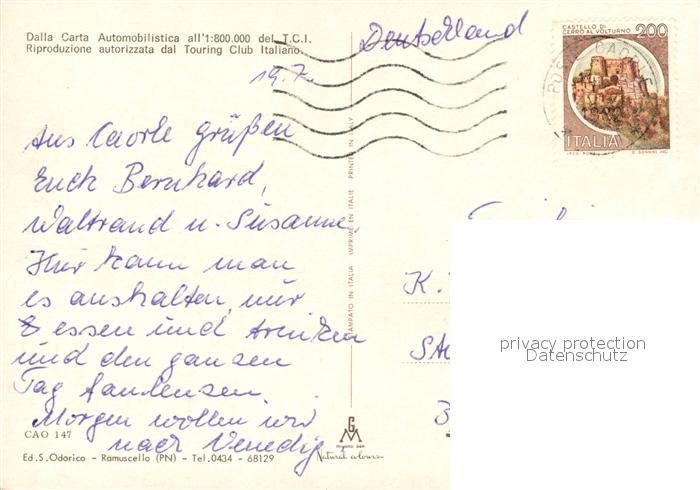 Dalla Carta Automobilistica all'1:800.000 del T.C.I.
Riproduzione autorizzata dal Touring Club Italiano.
Deutschland
CASTELLO DI
CERRO AL VOLTURNO 200
ITALIA
19.7.
Aus Caorle grüßen
Euch Bernhard,
Waltraud u. Susanne.
Hier kann man
es aushalten, nur
essen und trinken
und den ganzen
Tag faulenzen.
Morgen wollen wir
nach Venedig.
CAO 147
Ed. S. Odorico - Ramuscello (PN) - Tel. 0434 - 68129
STAMPATO IN ITALIA IMPRIME EN ITALIE PRINTED IN ITALY
GM
Natural colours
K.
3
privacy protection
Datenschutz